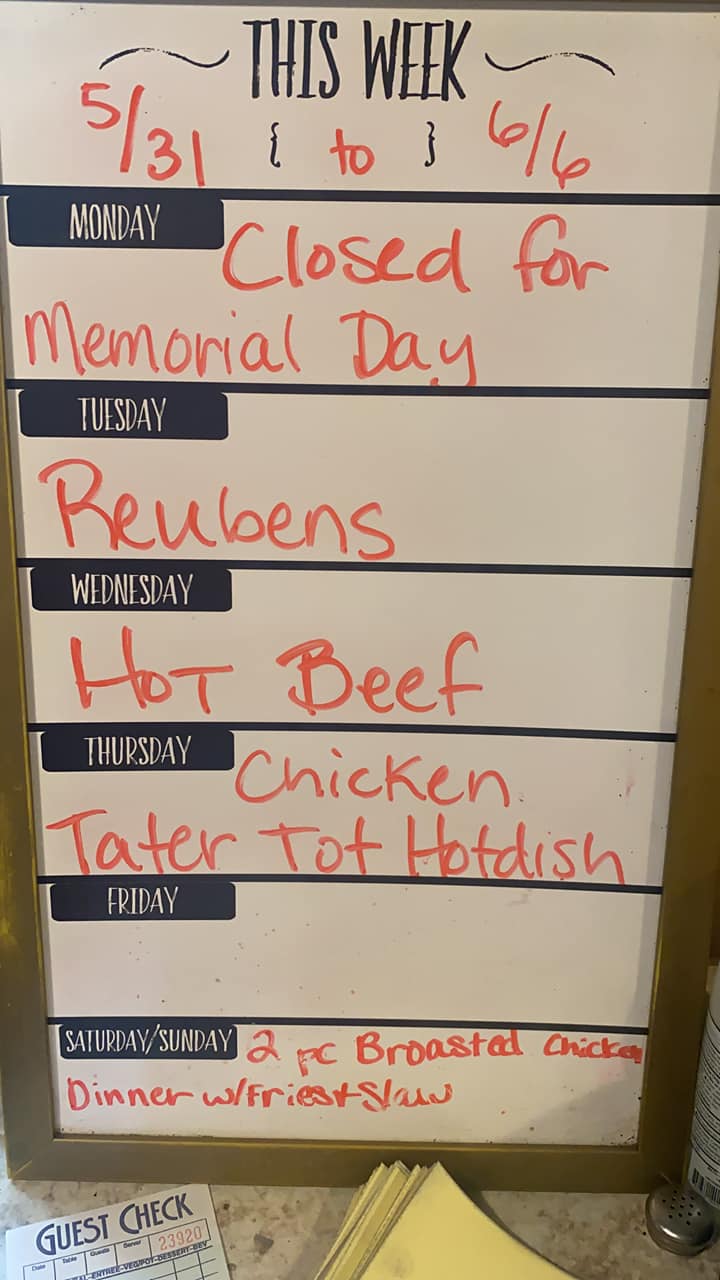 THIS WEEK
5/31 { to } 6/6
MONDAY Closed for
Memorial Day
TUESDAY
Reubens
WEDNESDAY
HOT Beef
THURSDAY Chicken
Tater Tot Hotdish
FRIDAY
SATURDAY/SUNDAY 2 pc Broasted Chicken
Dinner w/Fries+Slaw
GUEST CHECK
23920
Date Table Guests Server
-ENTREE-VEG/POT-DESSERT-BEV